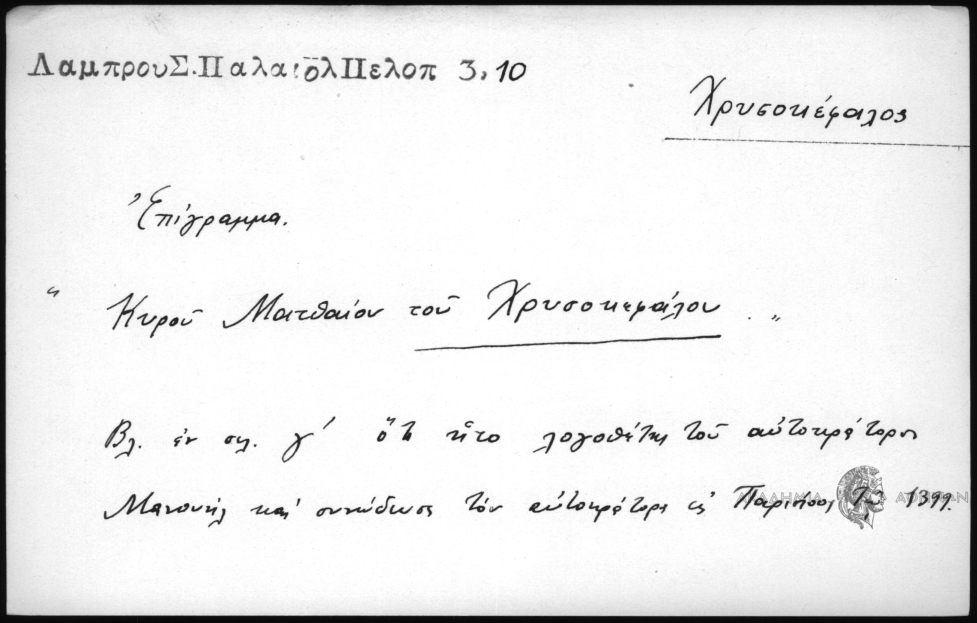 ΛαμπρουΣ.ΠαλαιολΠελοπ 3,10
Χρυσοκέφαλος
Ἐπίγραμμα.
"Κυροῦ Ματθαίου τοῦ Χρυσοκεφάλου."
Βλ. ἐν σελ. γ' ὅτι ἦτο λογοθέτης τοῦ αὐτοκράτορος
Μανουὴλ καὶ συνώδευσε τὸν αὐτοκράτορα εἰς Παρισίους τῷ 1399.
ΑΚΑΔΗΜΙΑ ΑΘΗΝΩΝ